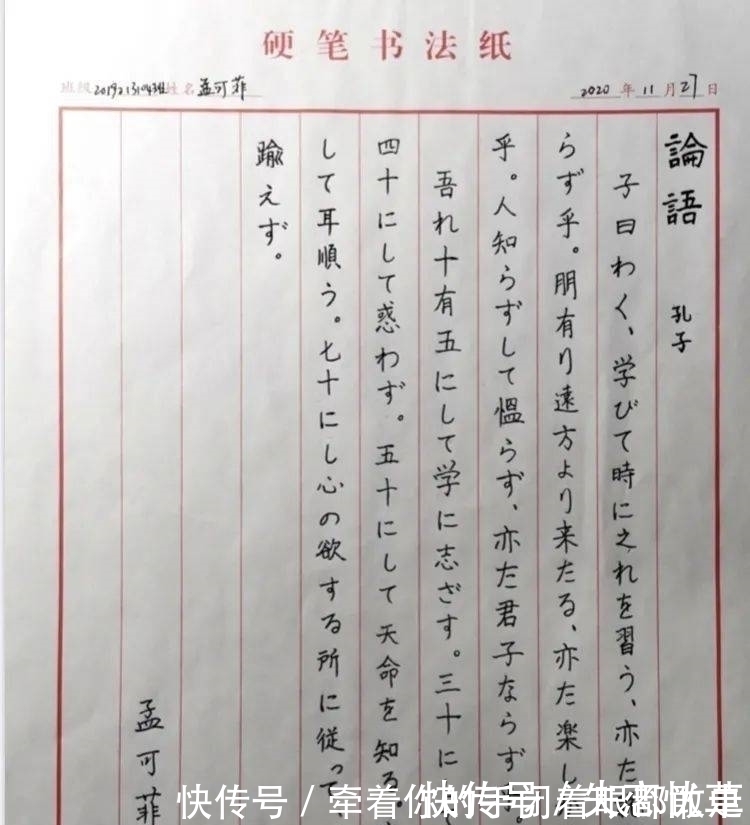 硬笔书法纸
班级2019213104班姓名孟可菲
2020年11月27日
論語 孔子
子曰わく、学びて時に之れを習う、亦た
らず乎。朋有り遠方より来たる、亦た楽し
乎。人知らずして慍らず、亦た君子ならず
吾れ十有五にして学に志ざす。三十に
四十にして惑わず。五十にして天命を知る。
して耳順う。七十にし心の欲する所に従って、
踰えず。
孟可菲
快传号/牵着你的手闭着眼都敢走
快传号/